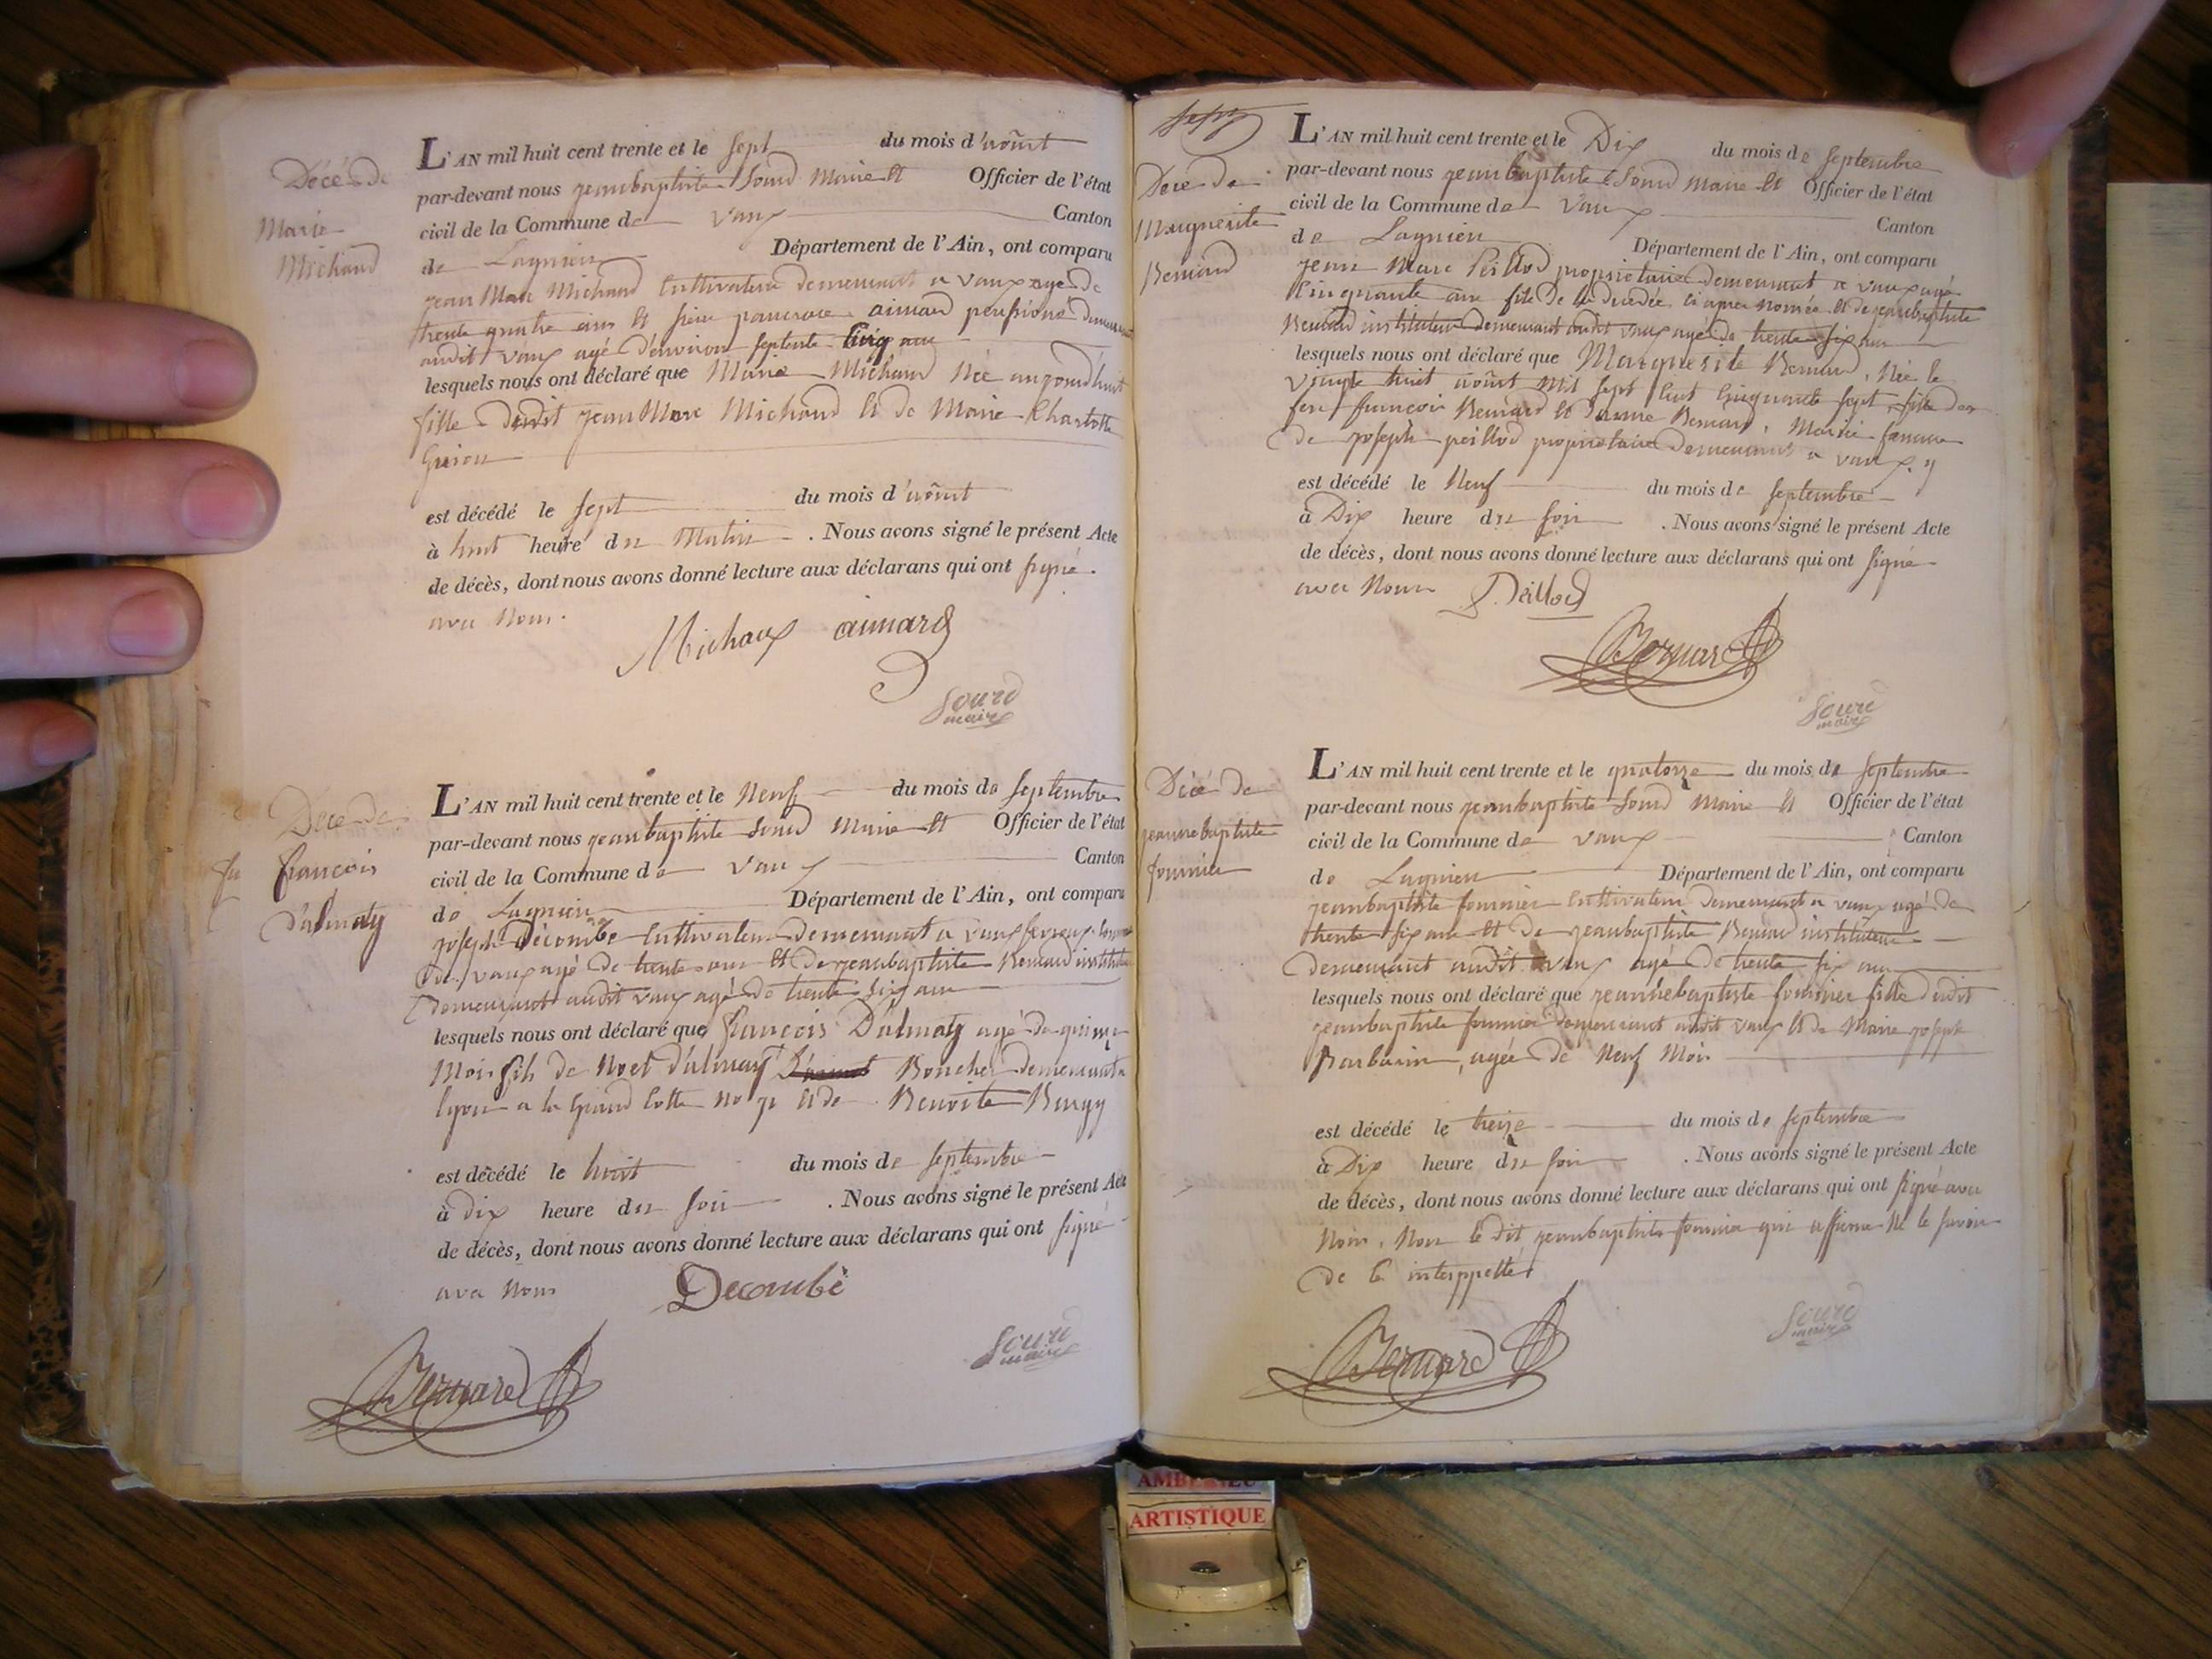 Décé de
Marie
Michaud
L'AN mil huit cent trente et le sept du mois d'août
par-devant nous jeanbaptiste Sourd Maire et Officier de l'état
civil de la Commune de Vaux Canton
de Lagnieu Département de l'Ain, ont comparu
jean Marc Michaud Cultivateur demeurant a vaux agé de
trente quatre ans et aimard pensioné
audit vaux agé d'environ septente cinq ans
lesquels nous ont déclaré que Marie Michaud Née aujourd'huit
fille dudit jean Marc Michaud et de Marie Charlotte
est décédé le sept du mois d'août
à huit heure du Matin . Nous avons signé le présent Acte
de décès, dont nous avons donné lecture aux déclarans qui ont signé
avec Nous.
Michaux aimard
Sourd
maire
Décé de
françois
Dalmaty
L'AN mil huit cent trente et le Neuf du mois de septembre
par-devant nous jeanbaptiste Sourd Maire et Officier de l'état
civil de la Commune de Vaux Canton
de Lagnieu Département de l'Ain, ont comparu
joseph Décombe Cultivateur demeurant a
vaux agé de trente ans et de jeanbaptiste Bernard
demeurant audit vaux agé de trente six ans
lesquels nous ont déclaré que françois Dalmaty agé de quinze
Mois fils de Noel Boucher demeurant a
lyon a la Grand Cotte no et de Benoite
est décédé le huit du mois de septembre
à dix heure du soir . Nous avons signé le présent Acte
de décès, dont nous avons donné lecture aux déclarans qui ont signé
avec Nous Decombe
Sourd
maire
Bernard
Décé de
Marguerite
Bernard
L'AN mil huit cent trente et le Dix du mois de septembre
par-devant nous jeanbaptiste Sourd Maire et Officier de l'état
civil de la Commune de Vaux Canton
de Lagnieu Département de l'Ain, ont comparu
jean Marc Peillod propriétaire demeurant a vaux agé
Cinquante ans fils de la décédée ci apres nomée et de jeanbaptiste
Bernard instituteur demeurant audit vaux agé de trente six ans
lesquels nous ont déclaré que Marguerite Bernard, Née le
vingte huit août mil sept cent cinquante sept fille des
feu françois Bernard et Bernard, Mariée
de joseph peillod propriétaire demeurant a vaux, y
est décédé le Neuf du mois de septembre
à Dix heure du soir . Nous avons signé le présent Acte
de décès, dont nous avons donné lecture aux déclarans qui ont signé
avec Nous Peillod
Bernard
Sourd
maire
Décé de
jeannebaptiste
fournier
L'AN mil huit cent trente et le quatorze du mois de septembre
par-devant nous jeanbaptiste Sourd Maire et Officier de l'état
civil de la Commune de Vaux Canton
de Lagnieu Département de l'Ain, ont comparu
jeanbaptiste fournier Cultivateur demeurant a vaux agé de
trente six ans et de jeanbaptiste Bernard instituteur
demeurant audit vaux agé de trente six ans
lesquels nous ont déclaré que jeannebaptiste fournier fille dudit
jeanbaptiste fournier demeurant audit vaux et de Marie joseph
Barbarin, agée de Neuf Mois
est décédé le treize du mois de septembre
à Dix heure du soir . Nous avons signé le présent Acte
de décès, dont nous avons donné lecture aux déclarans qui ont signé avec
Nous, Non le dit jeanbaptiste fournier qui affirme Ne le savoir
de ce interppellé
Bernard
Sourd
maire
ARTISTIQUE